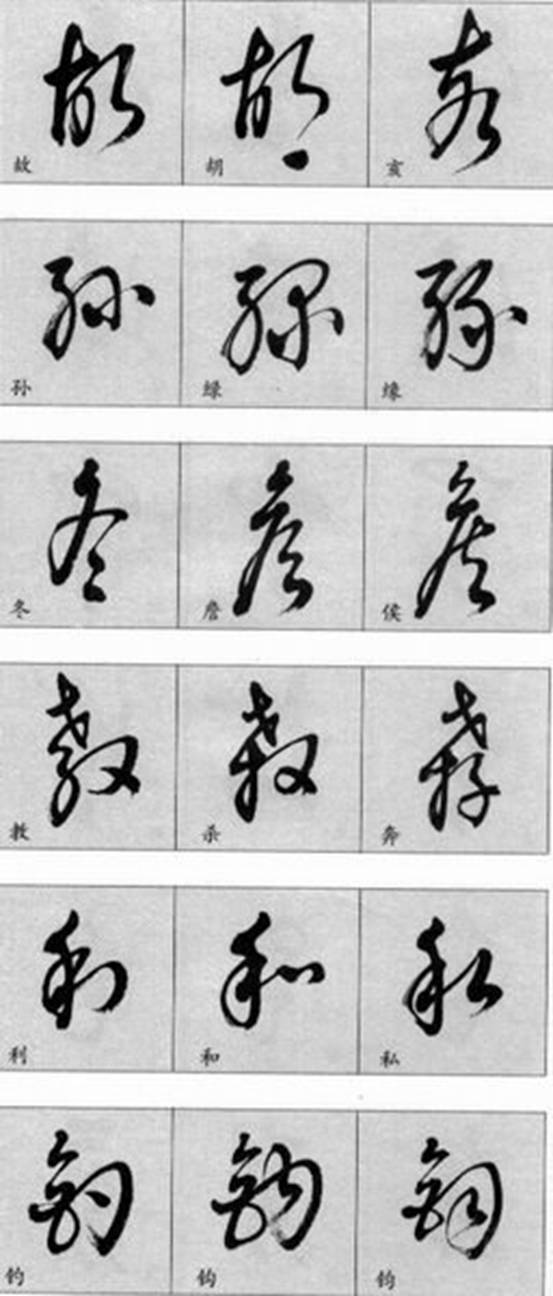 故 胡 亥
孙 绿 缘
冬 詹 侯
教 杀 奔
利 和 私
钓 钩 钧